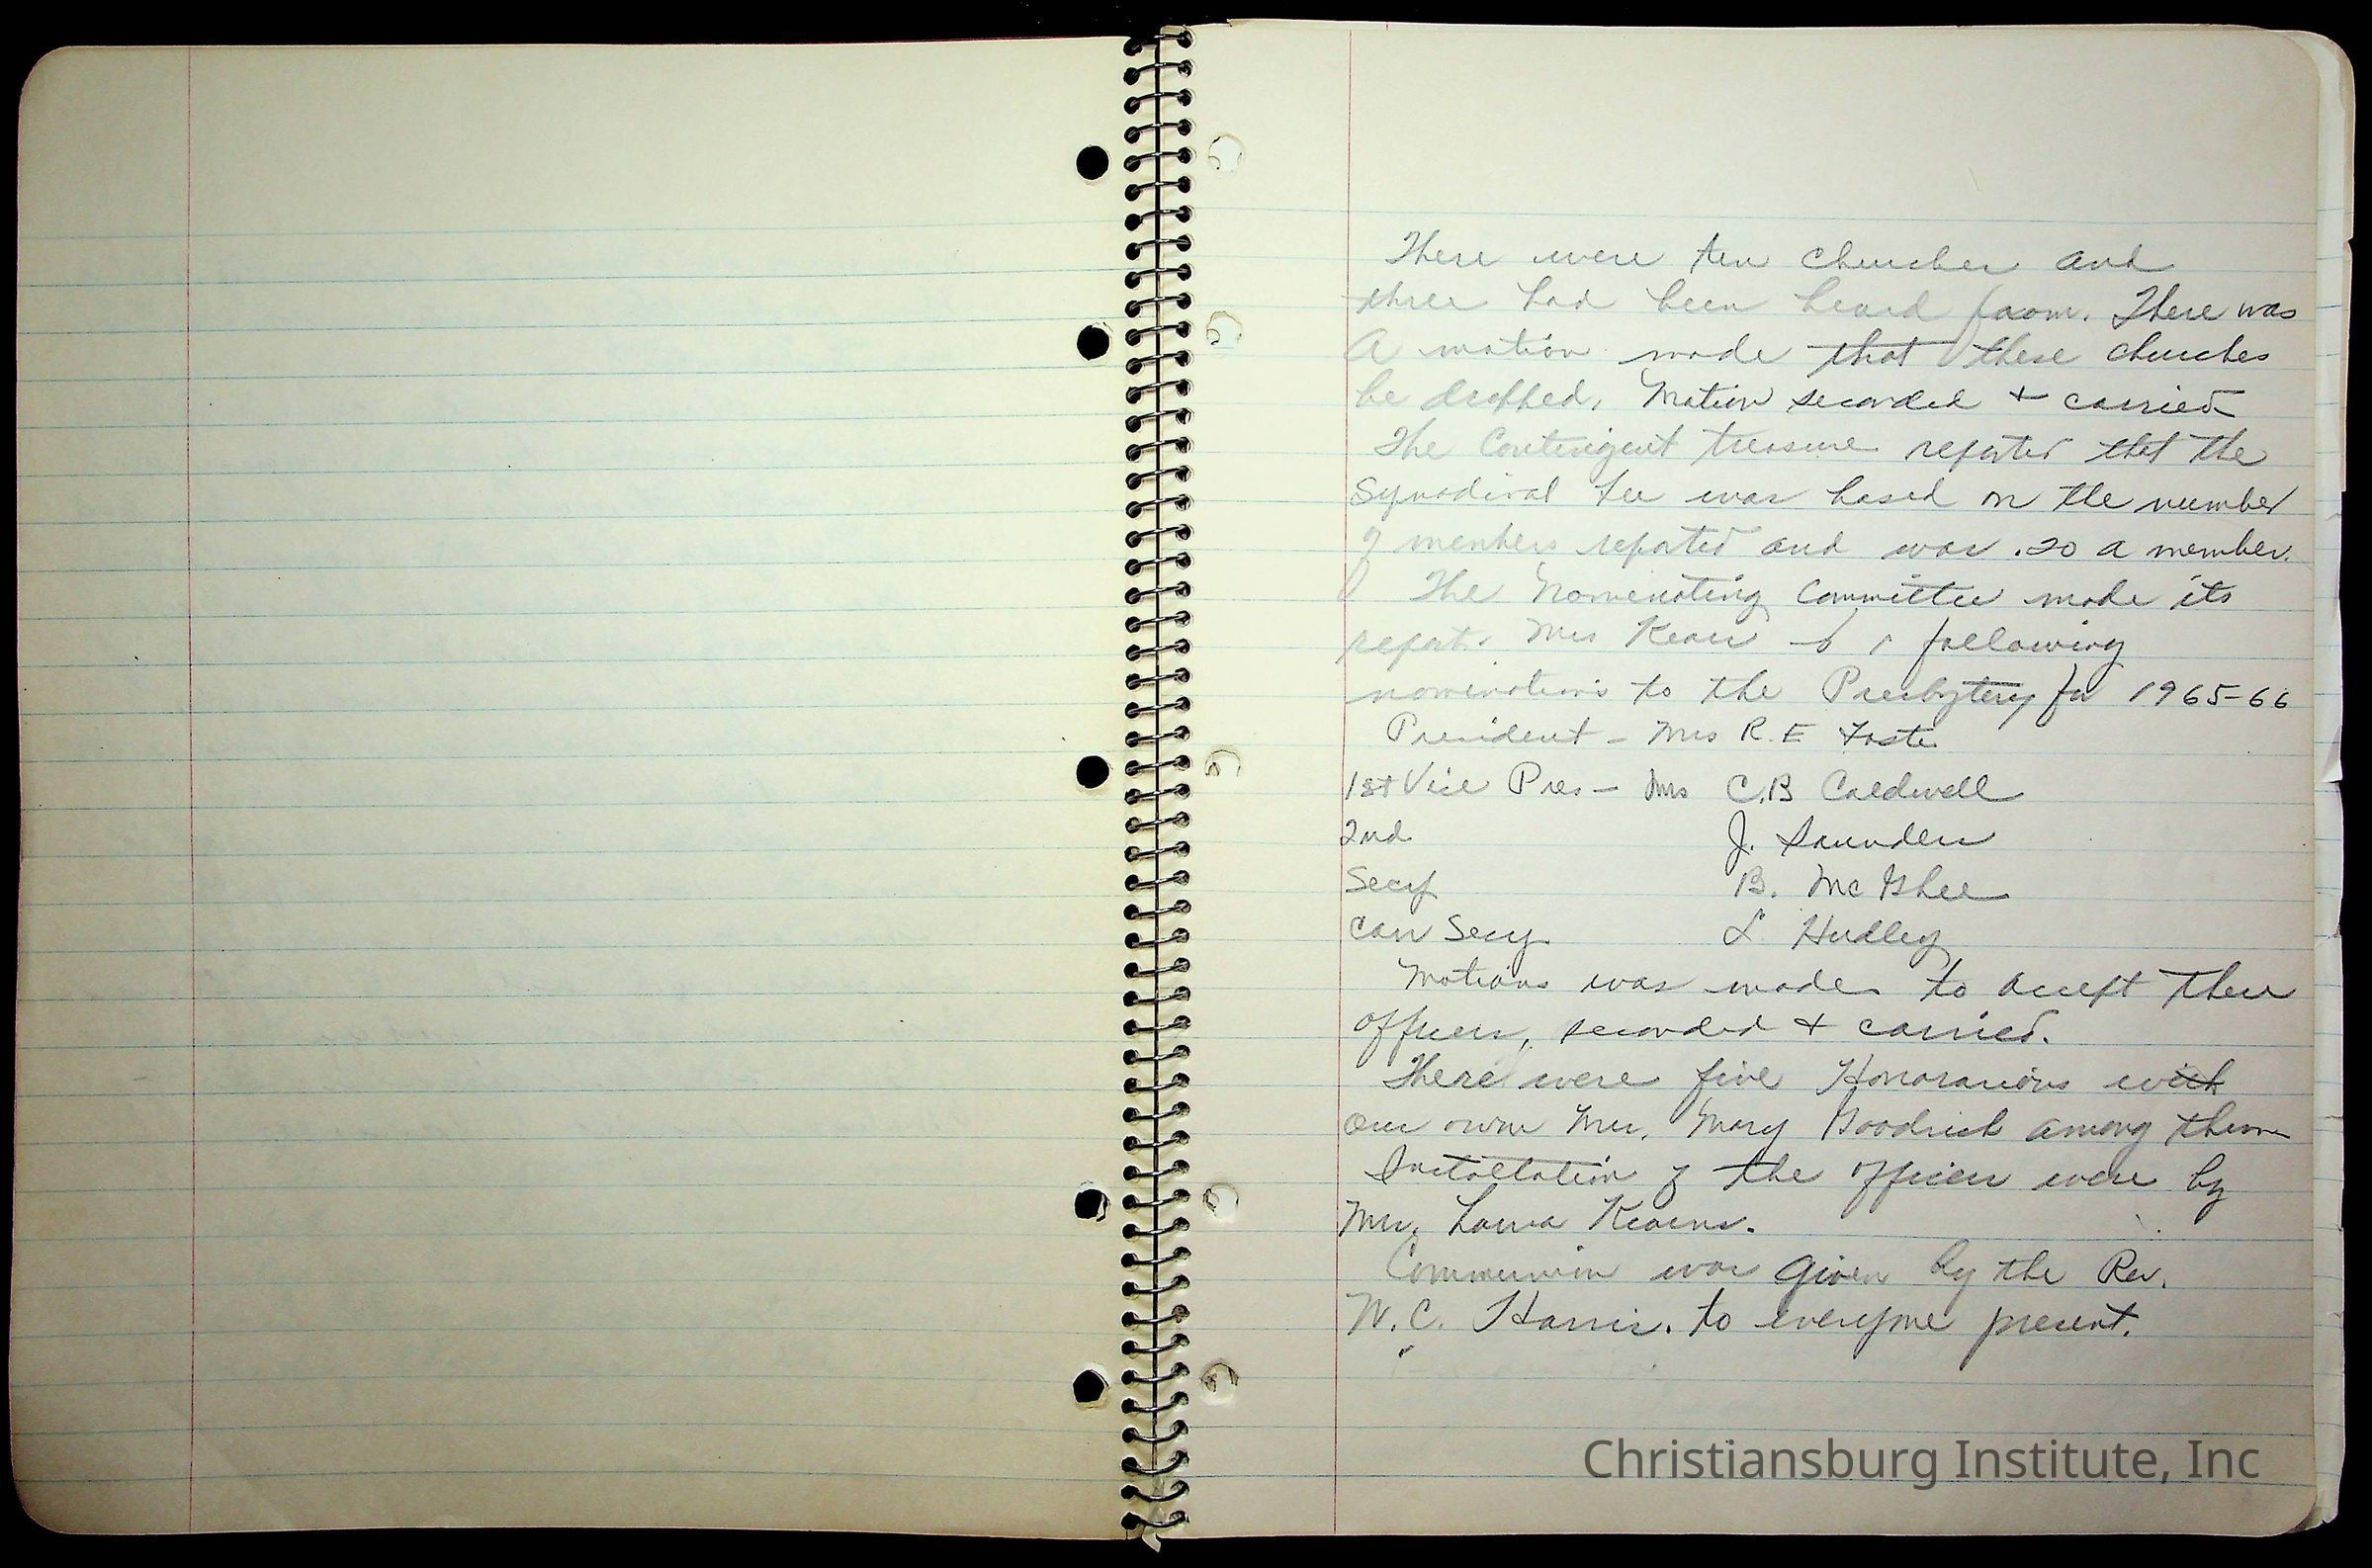 There were ten churches and
three had been heard from. There was
A motion made that these churches
be dropped. Motion seconded + carried
The Contingent treasure reported that the
Synodical fee was based on the number
of members reported and was .20 a member.
The Nominating Committee made its
report. Mrs Kearns following
nominations to the Presbytery for 1965-66
President - Mrs R. E Foster
1st Vice Pres - Mrs C.B Caldwell
2nd J. Saunders
Secy B. McGhee
Corr Secy L Hudley
Motions was made to accept these
officers, seconded + carried.
There were five Honorariums with
our own Mrs. Mary Goodrich among them
Installation of the officers were by
Mrs. Laura Kearns.
Communion was given by the Rev.
W. C. Harris. to everyone present.
Christiansburg Institute, Inc